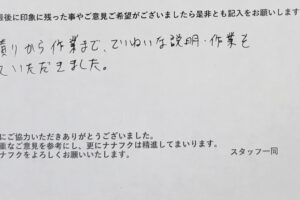 最後に印象に残った事やご意見ご希望がございましたら是非とも記入をお願いします
積りから作業まで、ていねいな説明・作業を
していただきました。
にご協力いただきありがとうございました。
重なご意見を参考にし、更にナナフクは精進してまいります。
ナフクをよろしくお願いいたします。
スタッフ一同